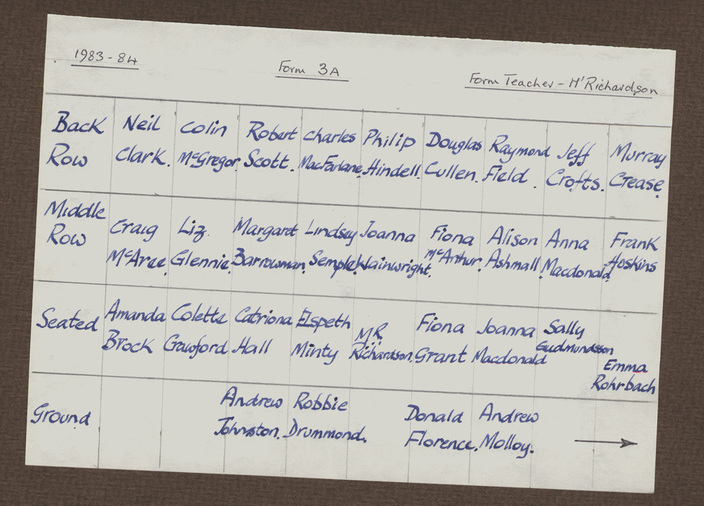 1983-84 Form 3A Form Teacher - Mr Richardson
Back Neil Colin Robert Charles Philip Douglas Raymond Jeff Murray
Row Clark. McGregor. Scott. MacFarlane. Hindell. Cullen. Field. Crofts. Crease.
Middle Craig Liz Margaret Lindsay Joanna Fiona Alison Anna Frank
Row McAree. Glennie. Barrowman. Semple. Wainwright. McArthur. Ashmall. Macdonald. Hoskins
Seated Amanda Colette Catriona Elspeth MR Fiona Joanna Sally
Brock Gawford Hall Minty Richardson. Grant Macdonald Gudmundsson
Emma
Rohrbach
Ground Andrew Robbie Donald Andrew
Johnston. Drummond. Florence. Molloy.